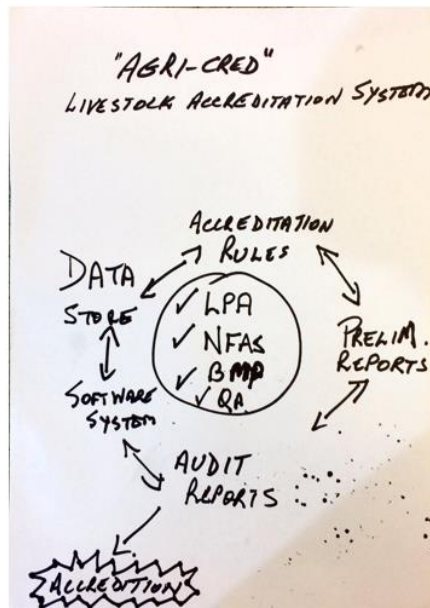 "AGRI-CRED"
LIVESTOCK ACCREDITATION SYSTEM
ACCREDITATION
RULES
DATA
STORE
✓ LPA
✓ NFAS
✓ BMP
✓ QA
PRELIM.
REPORTS
SOFTWARE
SYSTEM
AUDIT
REPORTS
ACCREDITION